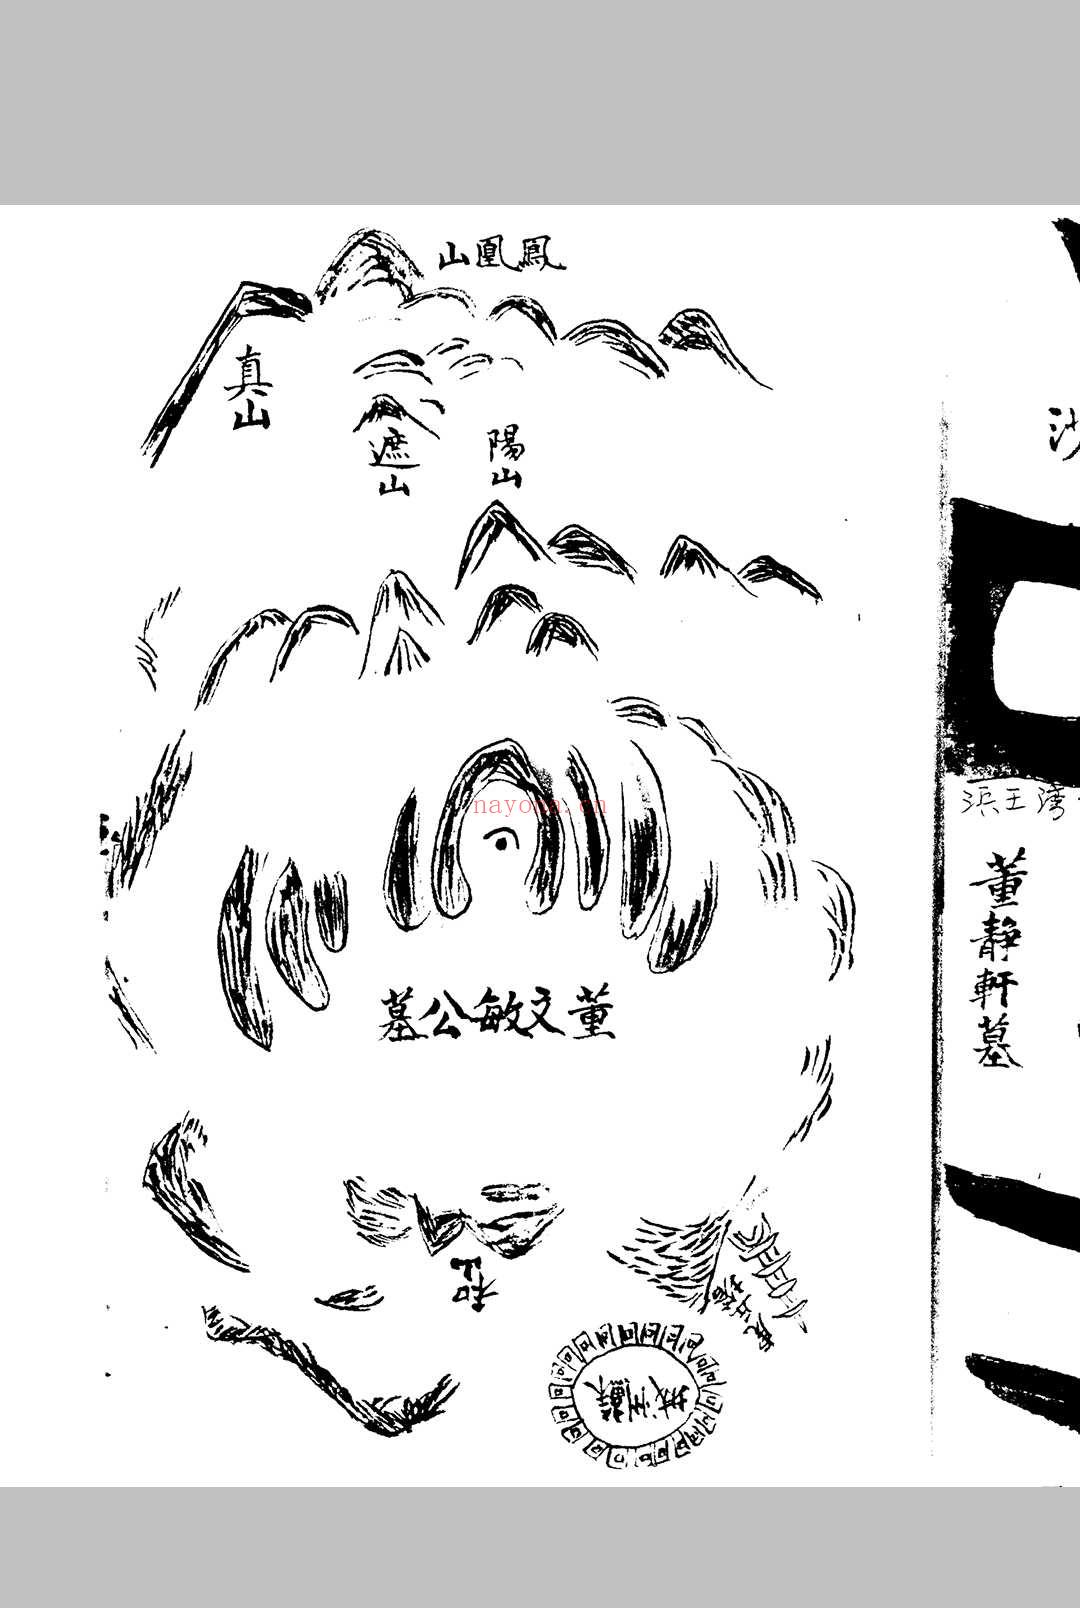 鳳凰山
真山
遮山
陽山
nayona.cn
董文敏公墓
和山
蘇州城
沙
浜王湾
董靜軒墓